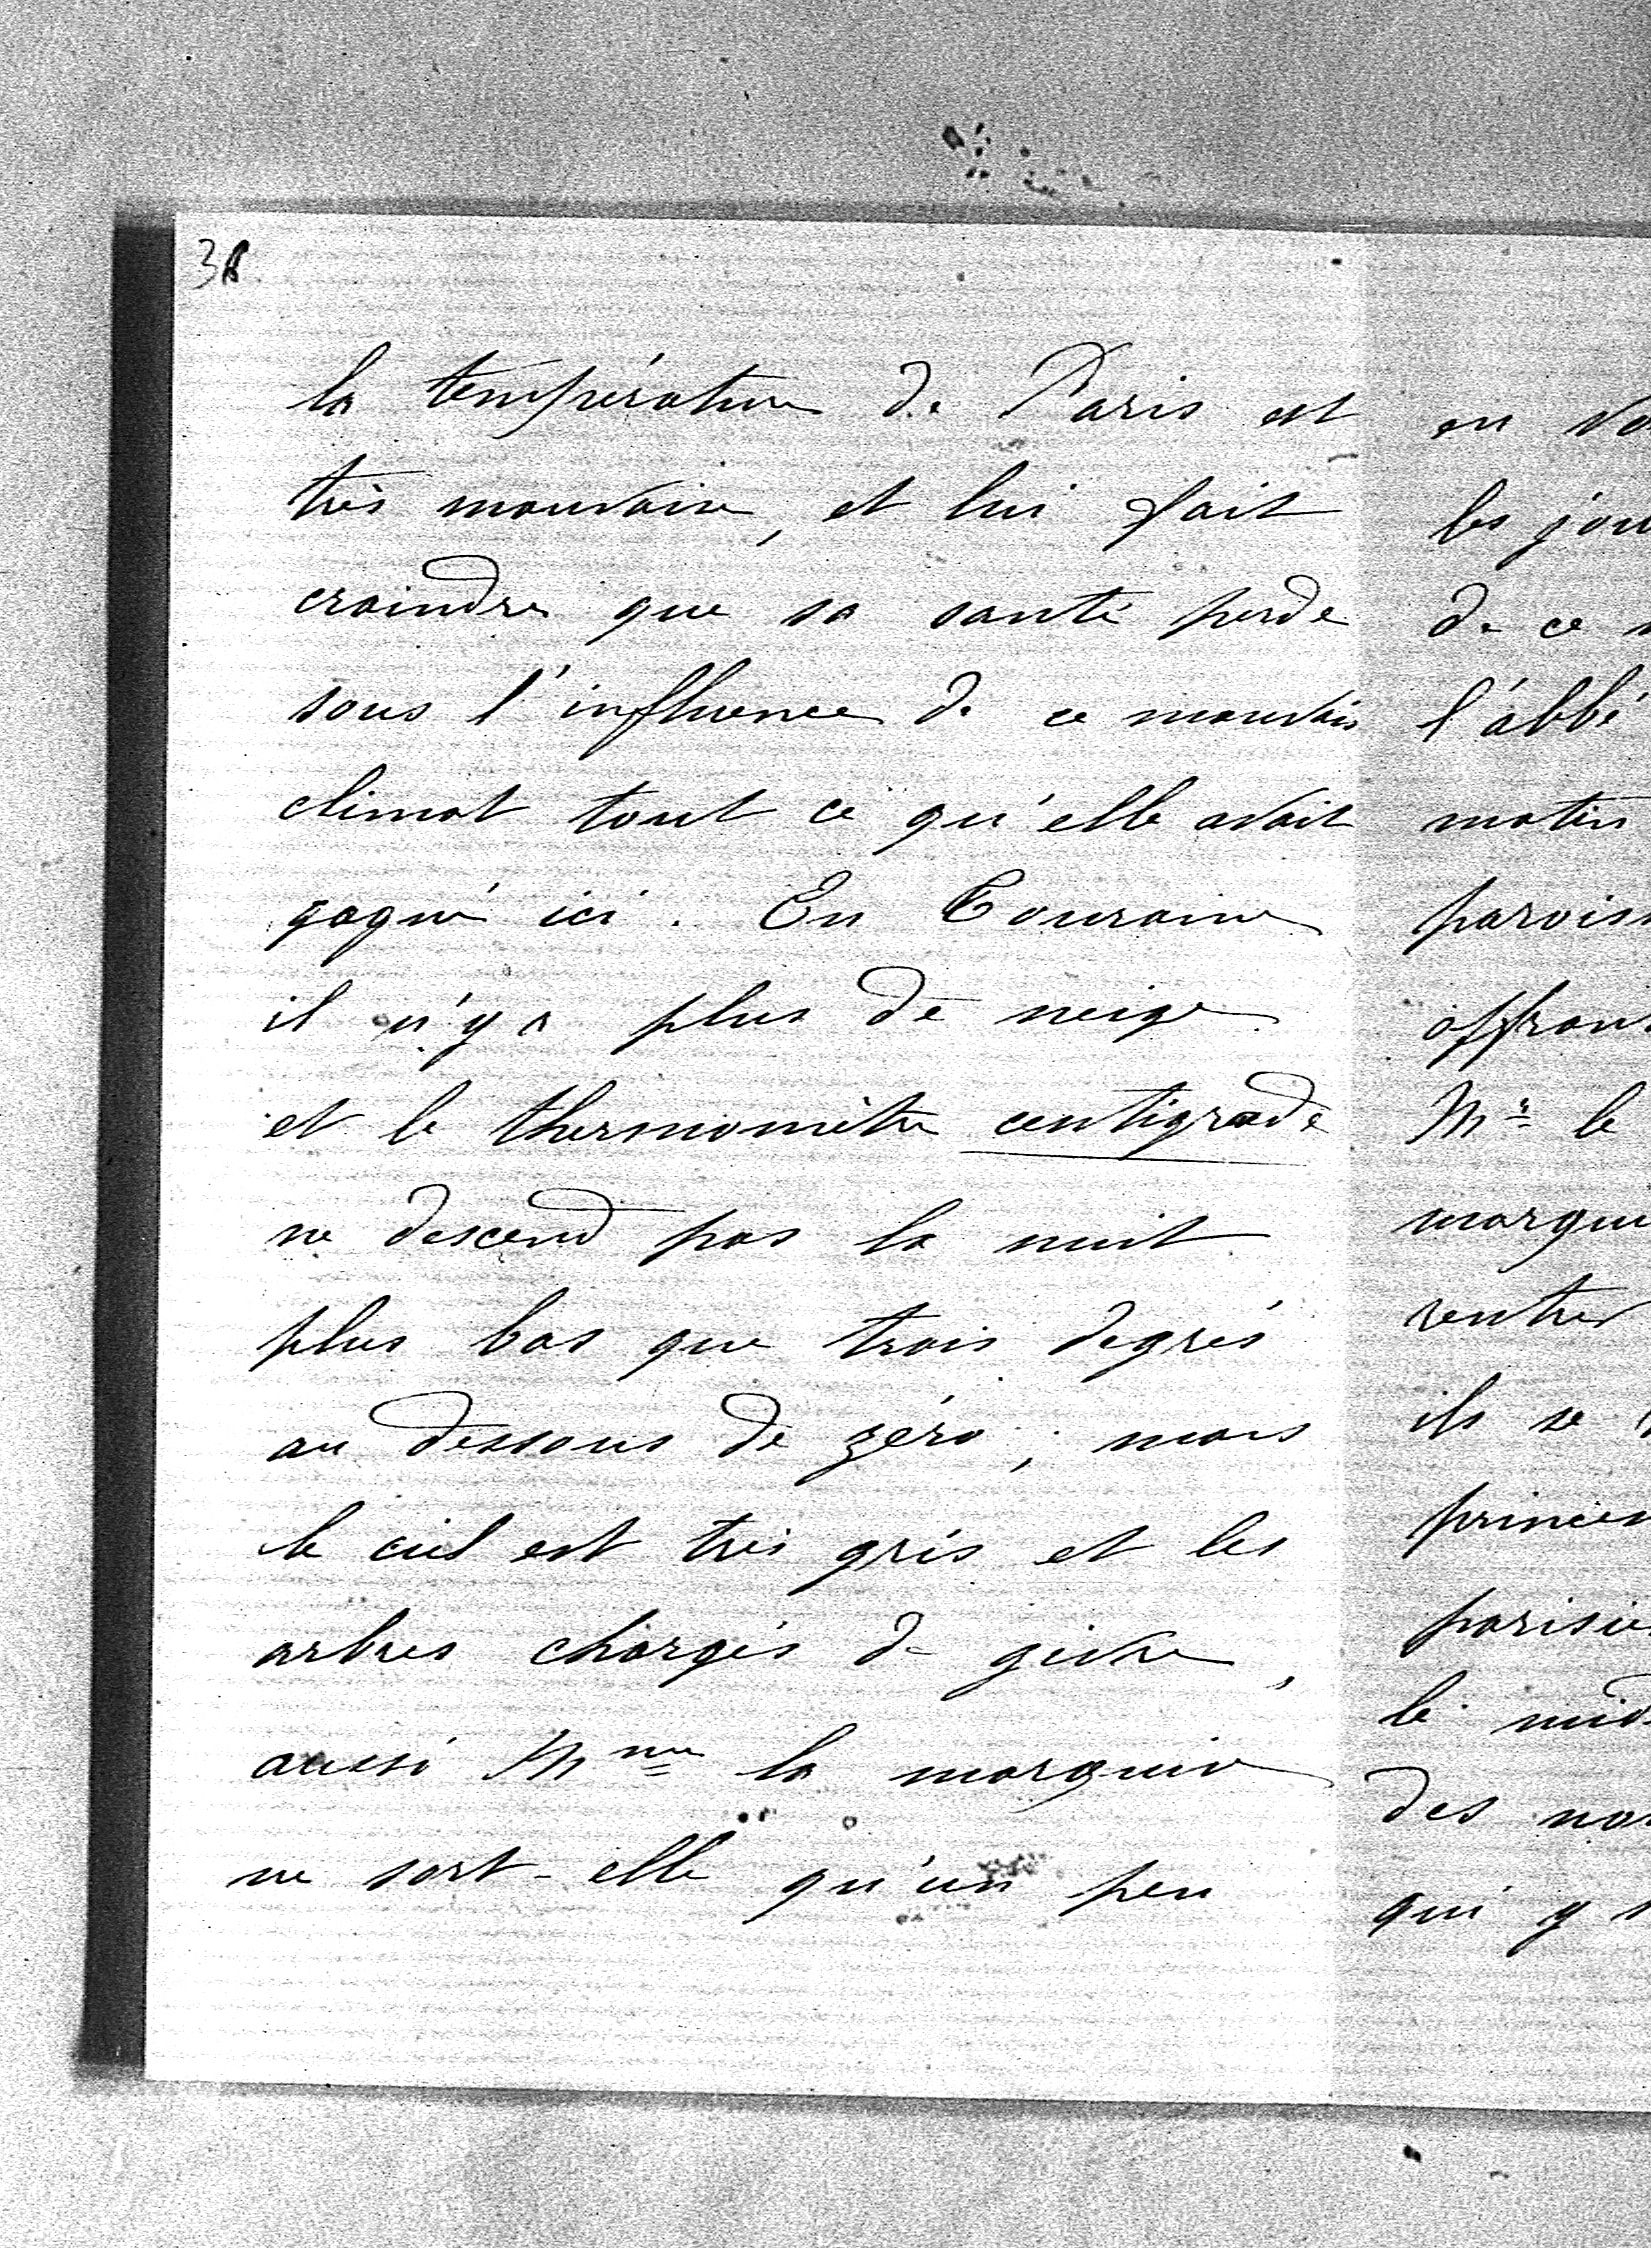 la température de Paris est
très mauvaise, et lui fait
craindre que sa santé perde
sous l'influence de ce mauvais
climat tout ce qu'elle avait
gagné ici. En Touraine
il n'y a plus de neige
et le thermomètre centigrade
ne descend pas la nuit
plus bas que trois degrés
au dessous de zéro ; mais
le ciel est très gris et les
arbres chargés de givre,
aussi Mme la marquise
ne sort-elle qu'un peu
en
les
de ce
l'abbé
matin
Mr le
rentrer
ils se
le
des
qui y